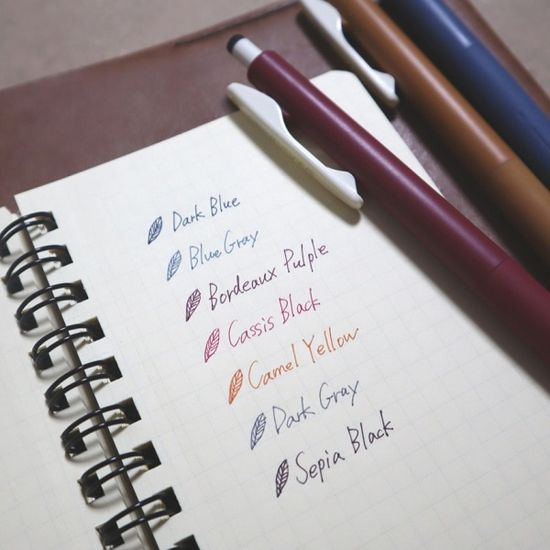 Dark Blue
Blue Gray
Bordeaux Pulple
Cassis Black
Camel Yellow
Dark Gray
Sepia Black